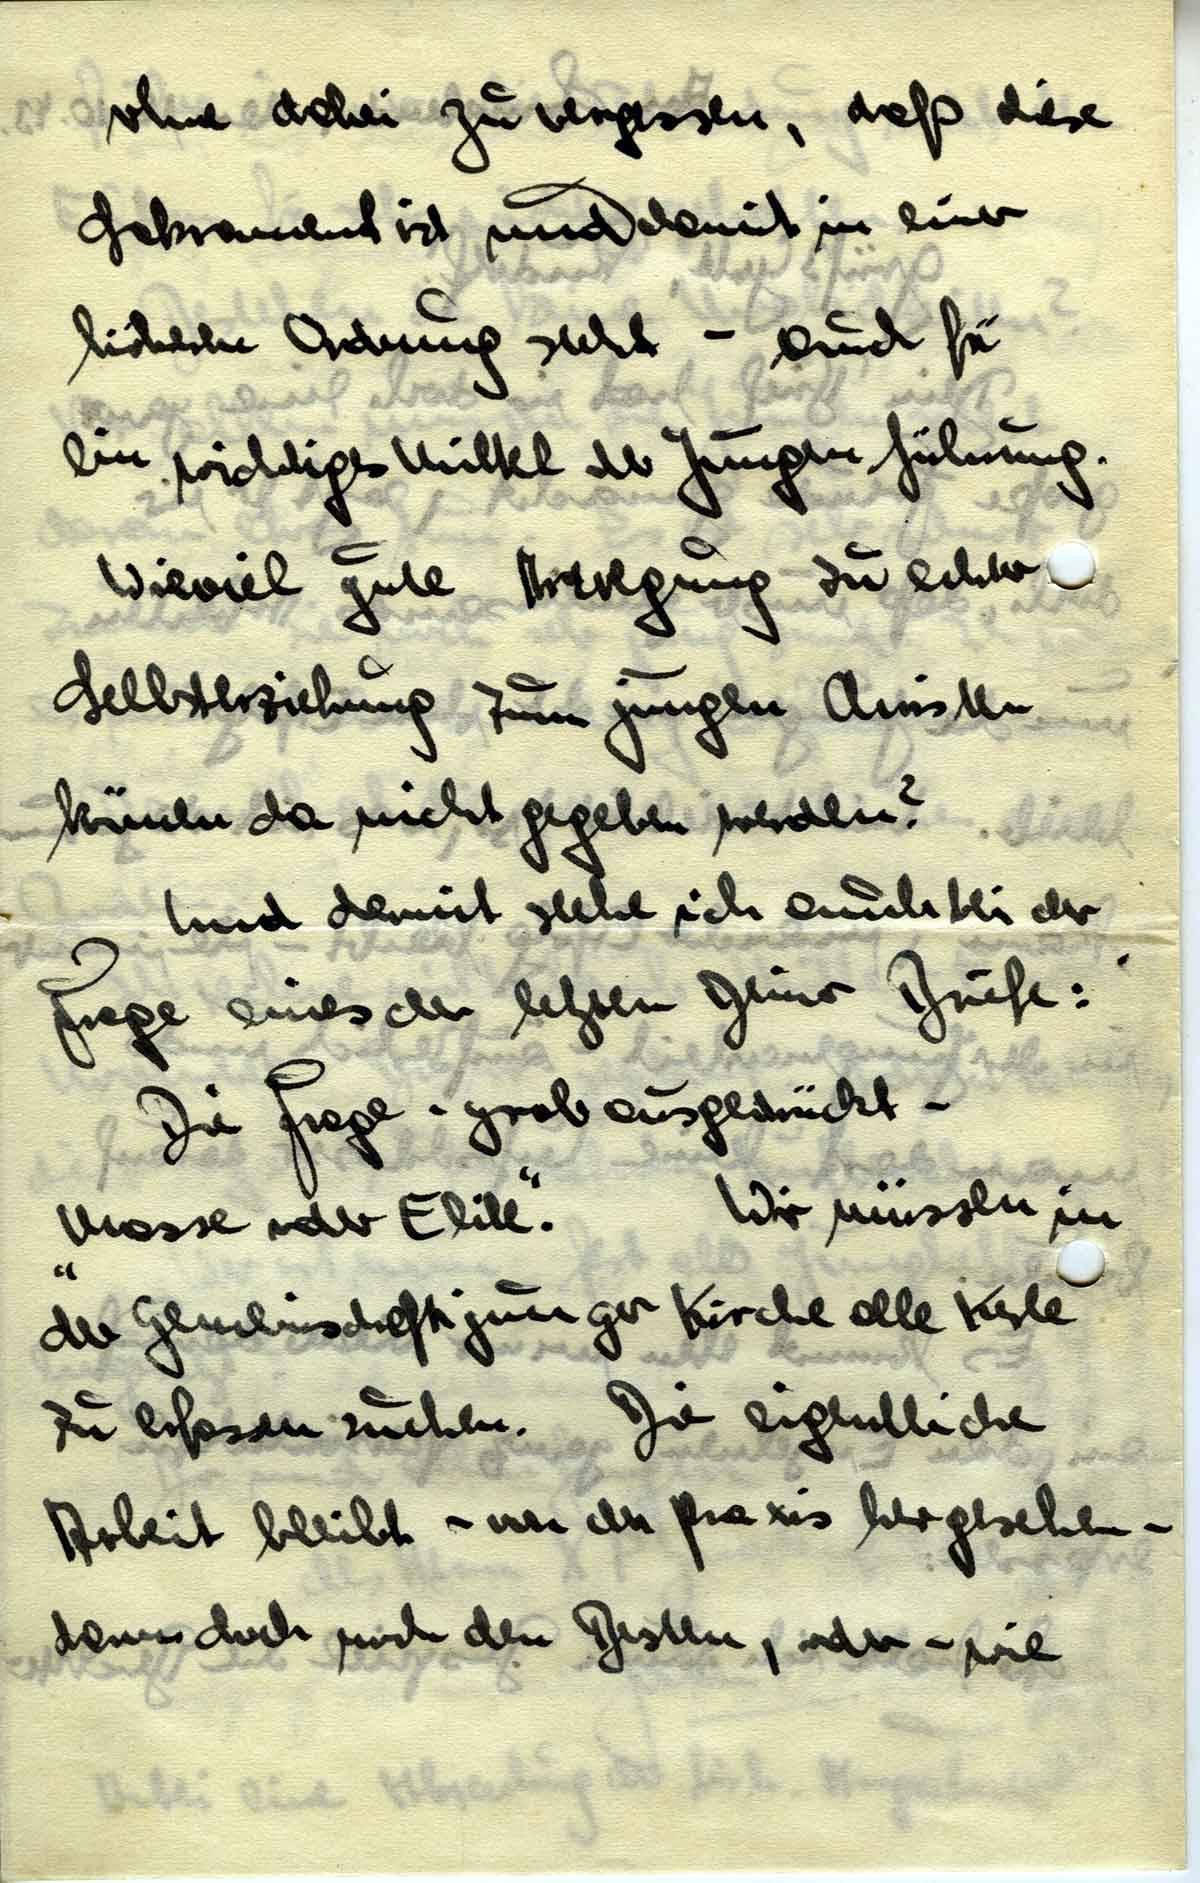 ohne dabei zu vergessen, daß diese
Sakrament ist und damit in einer
höheren Ordnung steht - auch für
ein wichtiges Mittel der Jungenführung.
Wieviel gute Anregung zu echter
Selbsterziehung zum jungen Christen
können da nicht gegeben werden?
Und damit stehe ich auch bei der
Frage eines der letzten Deiner Briefe:
Die Frage - grob ausgedrückt -
"Masse oder Elite". Wir müssen in
der Gemeinschaft junger Kirche alle Kerle
zu erfassen suchen. Die eigentliche
Arbeit bleibt - von der Praxis her gesehen -
dann doch noch den Besten, oder - wie